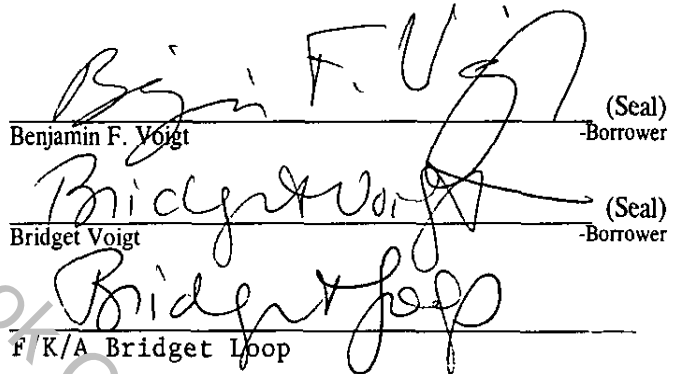 Benjamin F. Voigt
(Seal)
Benjamin F. Voigt -Borrower
Bridget Voigt
(Seal)
Bridget Voigt -Borrower
Bridget Loop
F/K/A Bridget Loop